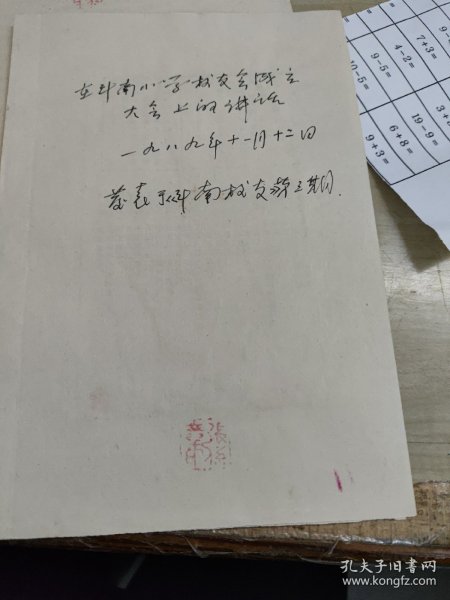 在斗南小学校友会成立
大会上的讲话
一九八九年十一月十二日
发表于斗南校友第三期.
10-5=
9-5=
4-2=
7+3=
9+3=
6+8=
19-9=
孔夫子旧书网
www.kongfz.com